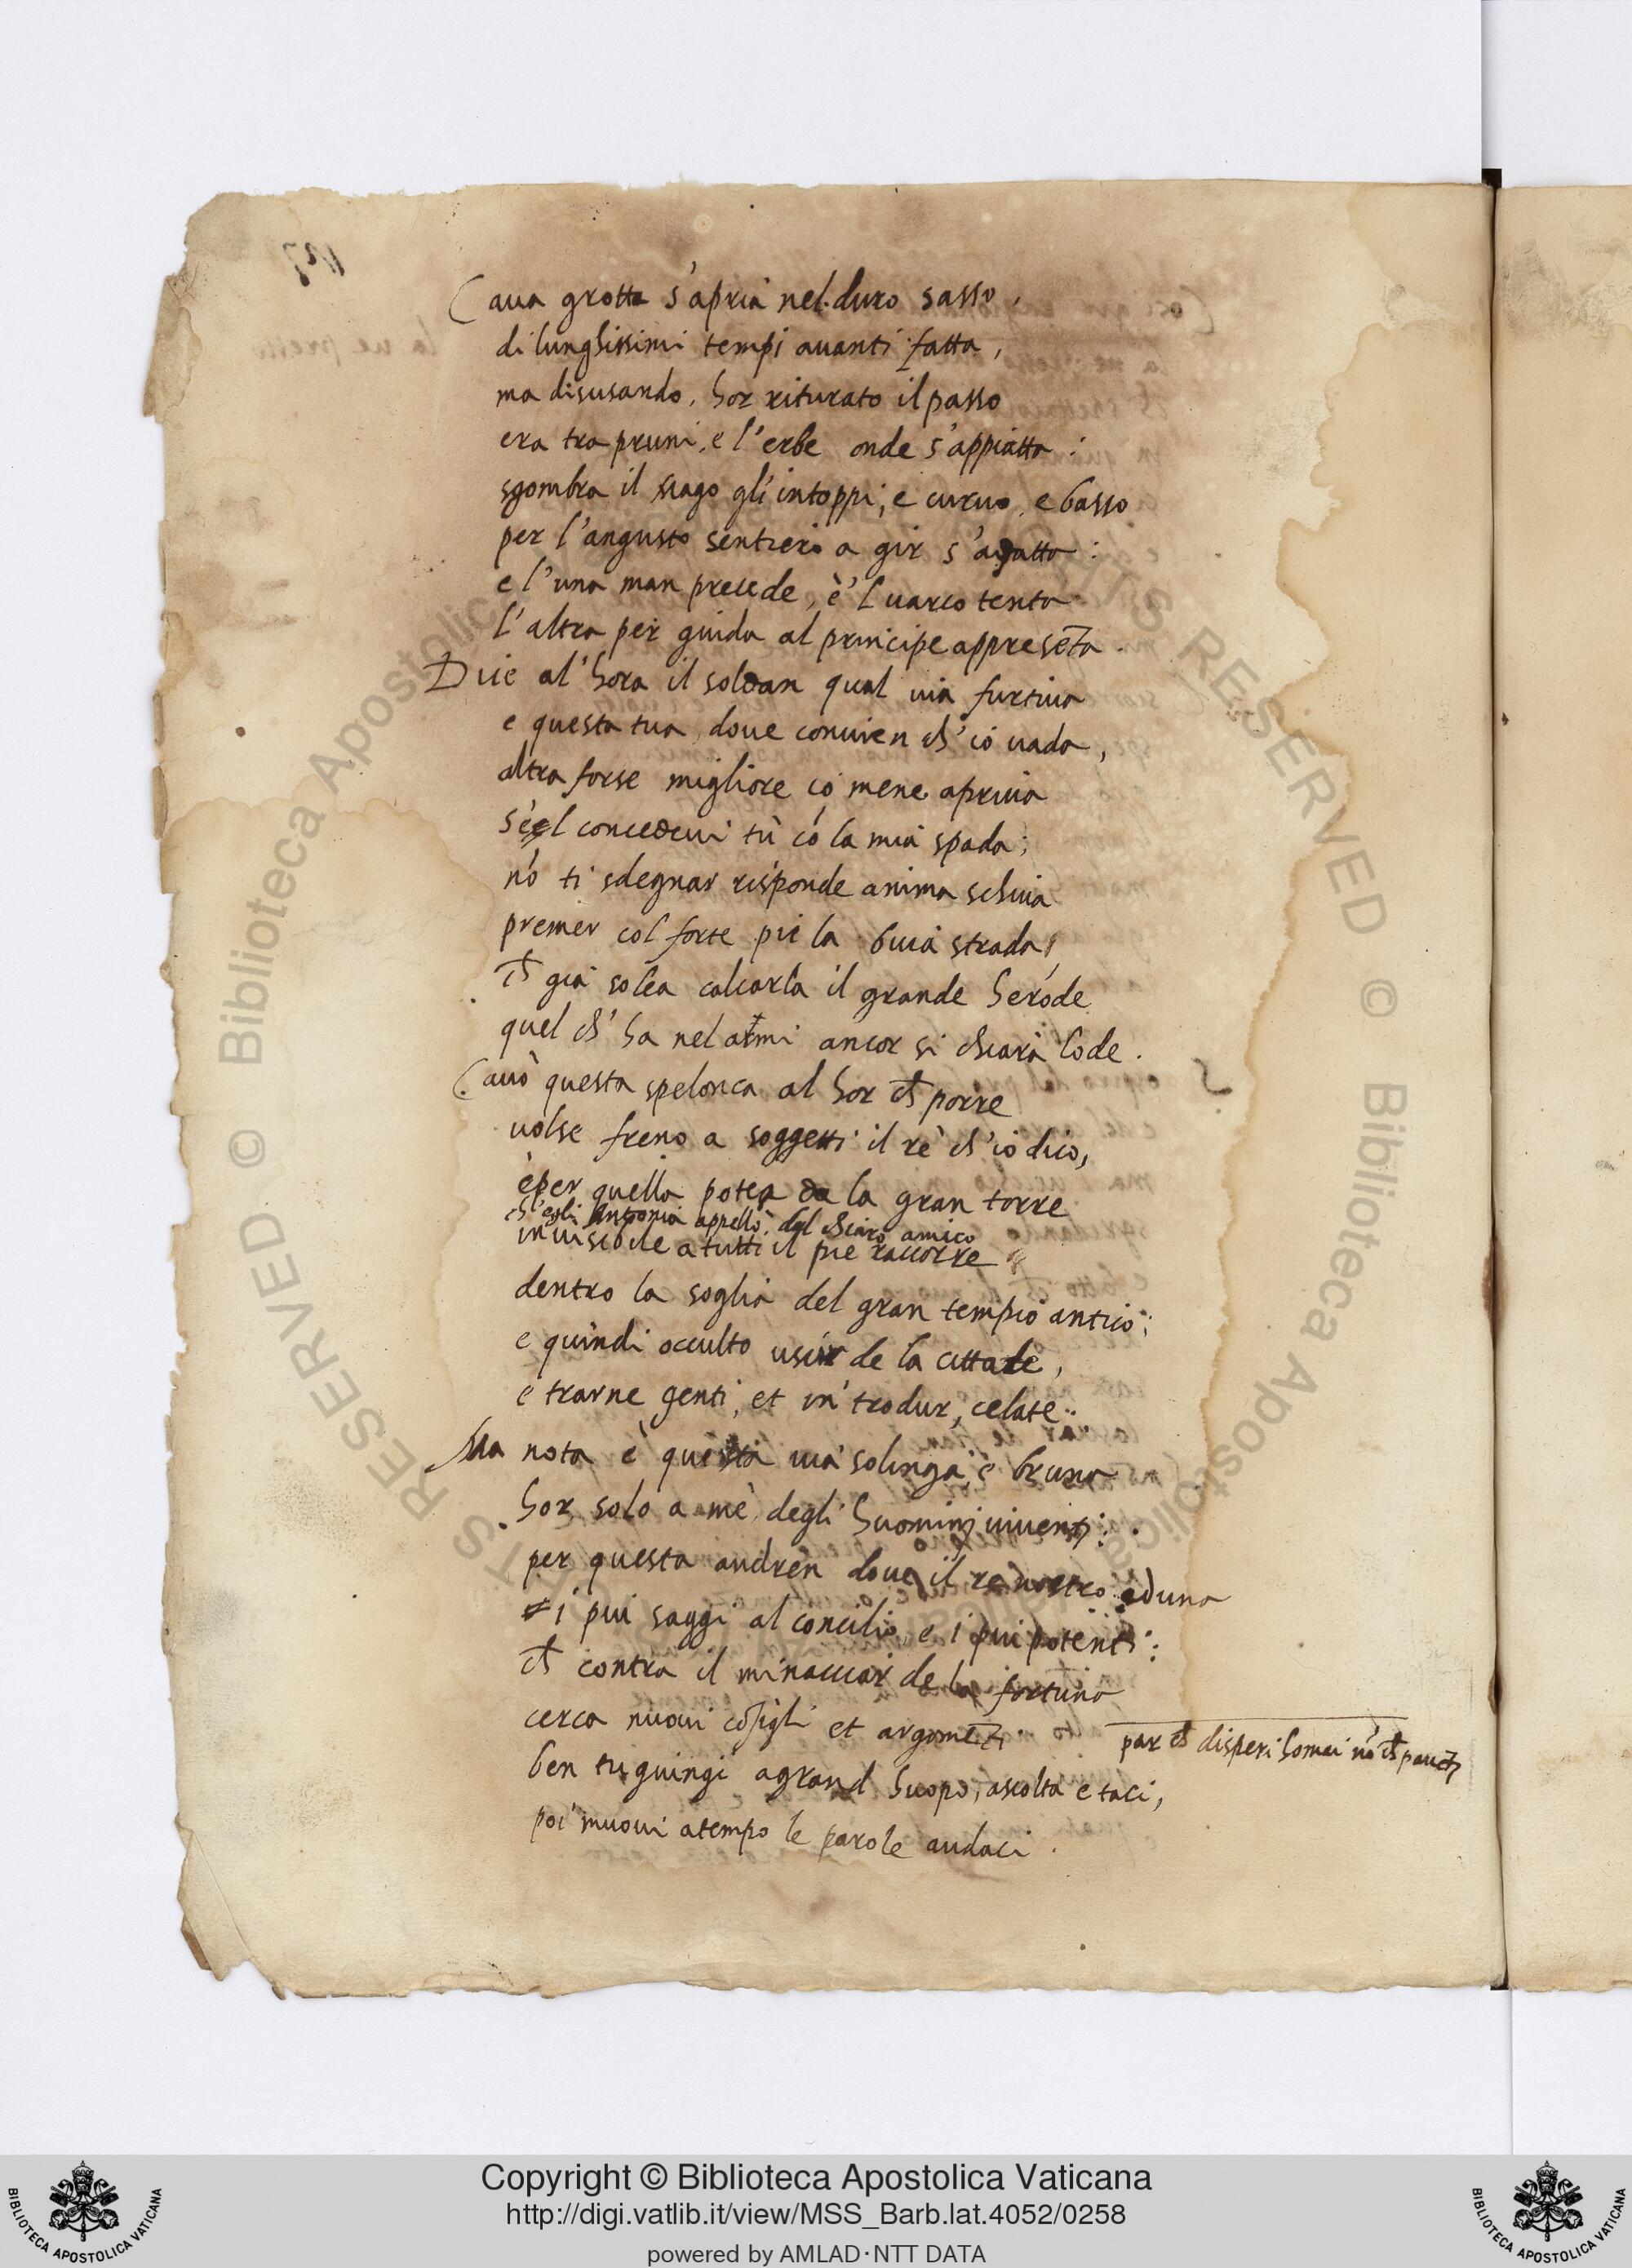 Caua grotta s'apria nel duro sasso,
di lunghissimi tempi auanti fatta,
ma disusando, hor riturato il passo
era tra pruni, e l'erbe onde s'appiatta:
sgombra il mago gl'intoppi, e curuo, e basso
per l'angusto sentiero a gir s'adatta:
e l'una man precede, e'l uarco tenta
l'altra per guida al principe appresẽta.
Dice al'hora il soldan qual uia furtiua
e questa tua, doue conuien ch'io uada,
altra forse migliore io mene apriua
se'l concedeui tù cõ la mia spada;
nõ ti sdegnar risponde anima schiua
premer col forte piè la buia strada,
ch già solea calcarla il grande herode
quel ch'ha nel armi ancor si chiara lode.
Cauò questa spelonca al hor ch porre
uolse freno a soggetti il rè ch'io dico,
e per quella potea da la gran torre
ch'egli Antonia appellò, dal chiaro amico
inuisibile a tutti il piè raccorre
dentro la soglia del gran tempio antico;
e quindi occulto uscir de la cittade,
e trarne genti, et in trodur, celate.
Ma nota è questa uia solinga, e bruna
hor solo a mè, degli huomini uiuenti:
per questa andren doue il re nostro aduna
i piu saggi al concilio e i piu potenti:
ch contra il minacciar de la fortuna
cerca nuoui cõsigli et argomẽti
par ch disperi homai nõ ch pauẽti
ben tu giungi a grand huopo, ascolta e taci,
poi muoui a tempo le parole audaci.
RIGHTS RESERVED © Biblioteca Apostolica Vaticana
Copyright © Biblioteca Apostolica Vaticana
http://digi.vatlib.it/view/MSS_Barb.lat.4052/0258
powered by AMLAD·NTT DATA
BIBLIOTECA APOSTOLICA VATICANA
BIBLIOTECA APOSTOLICA VATICANA